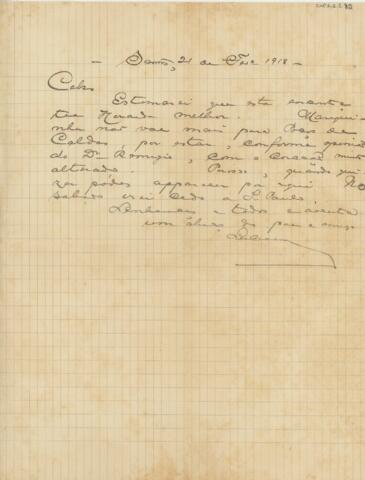 - Santos, 21 de Fevº 1918 -
Celso
Estimarei que esta encontre
teu Morada melhor. Mariqui-
nha não vae mais para Poços de
Caldas, por estar, conforme opinião
do Dr. Romugio, com o coração muito
alterado. Posso, quando qui-
zer pódes apparecer por aqui. No
sabado irei cedo a S. Paulo.
Lembranças a todos e aceita
um abraço do pae e amigo